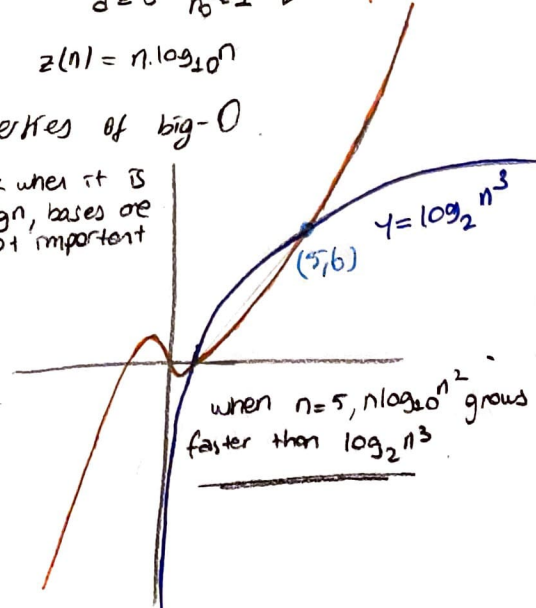 z(n) = n.log₁₀n
of big-O.
when it is
bases are
important
y = log₂ n³
(5,6)
when n=5, nlog₁₀n² grows
faster than log₂ n³.